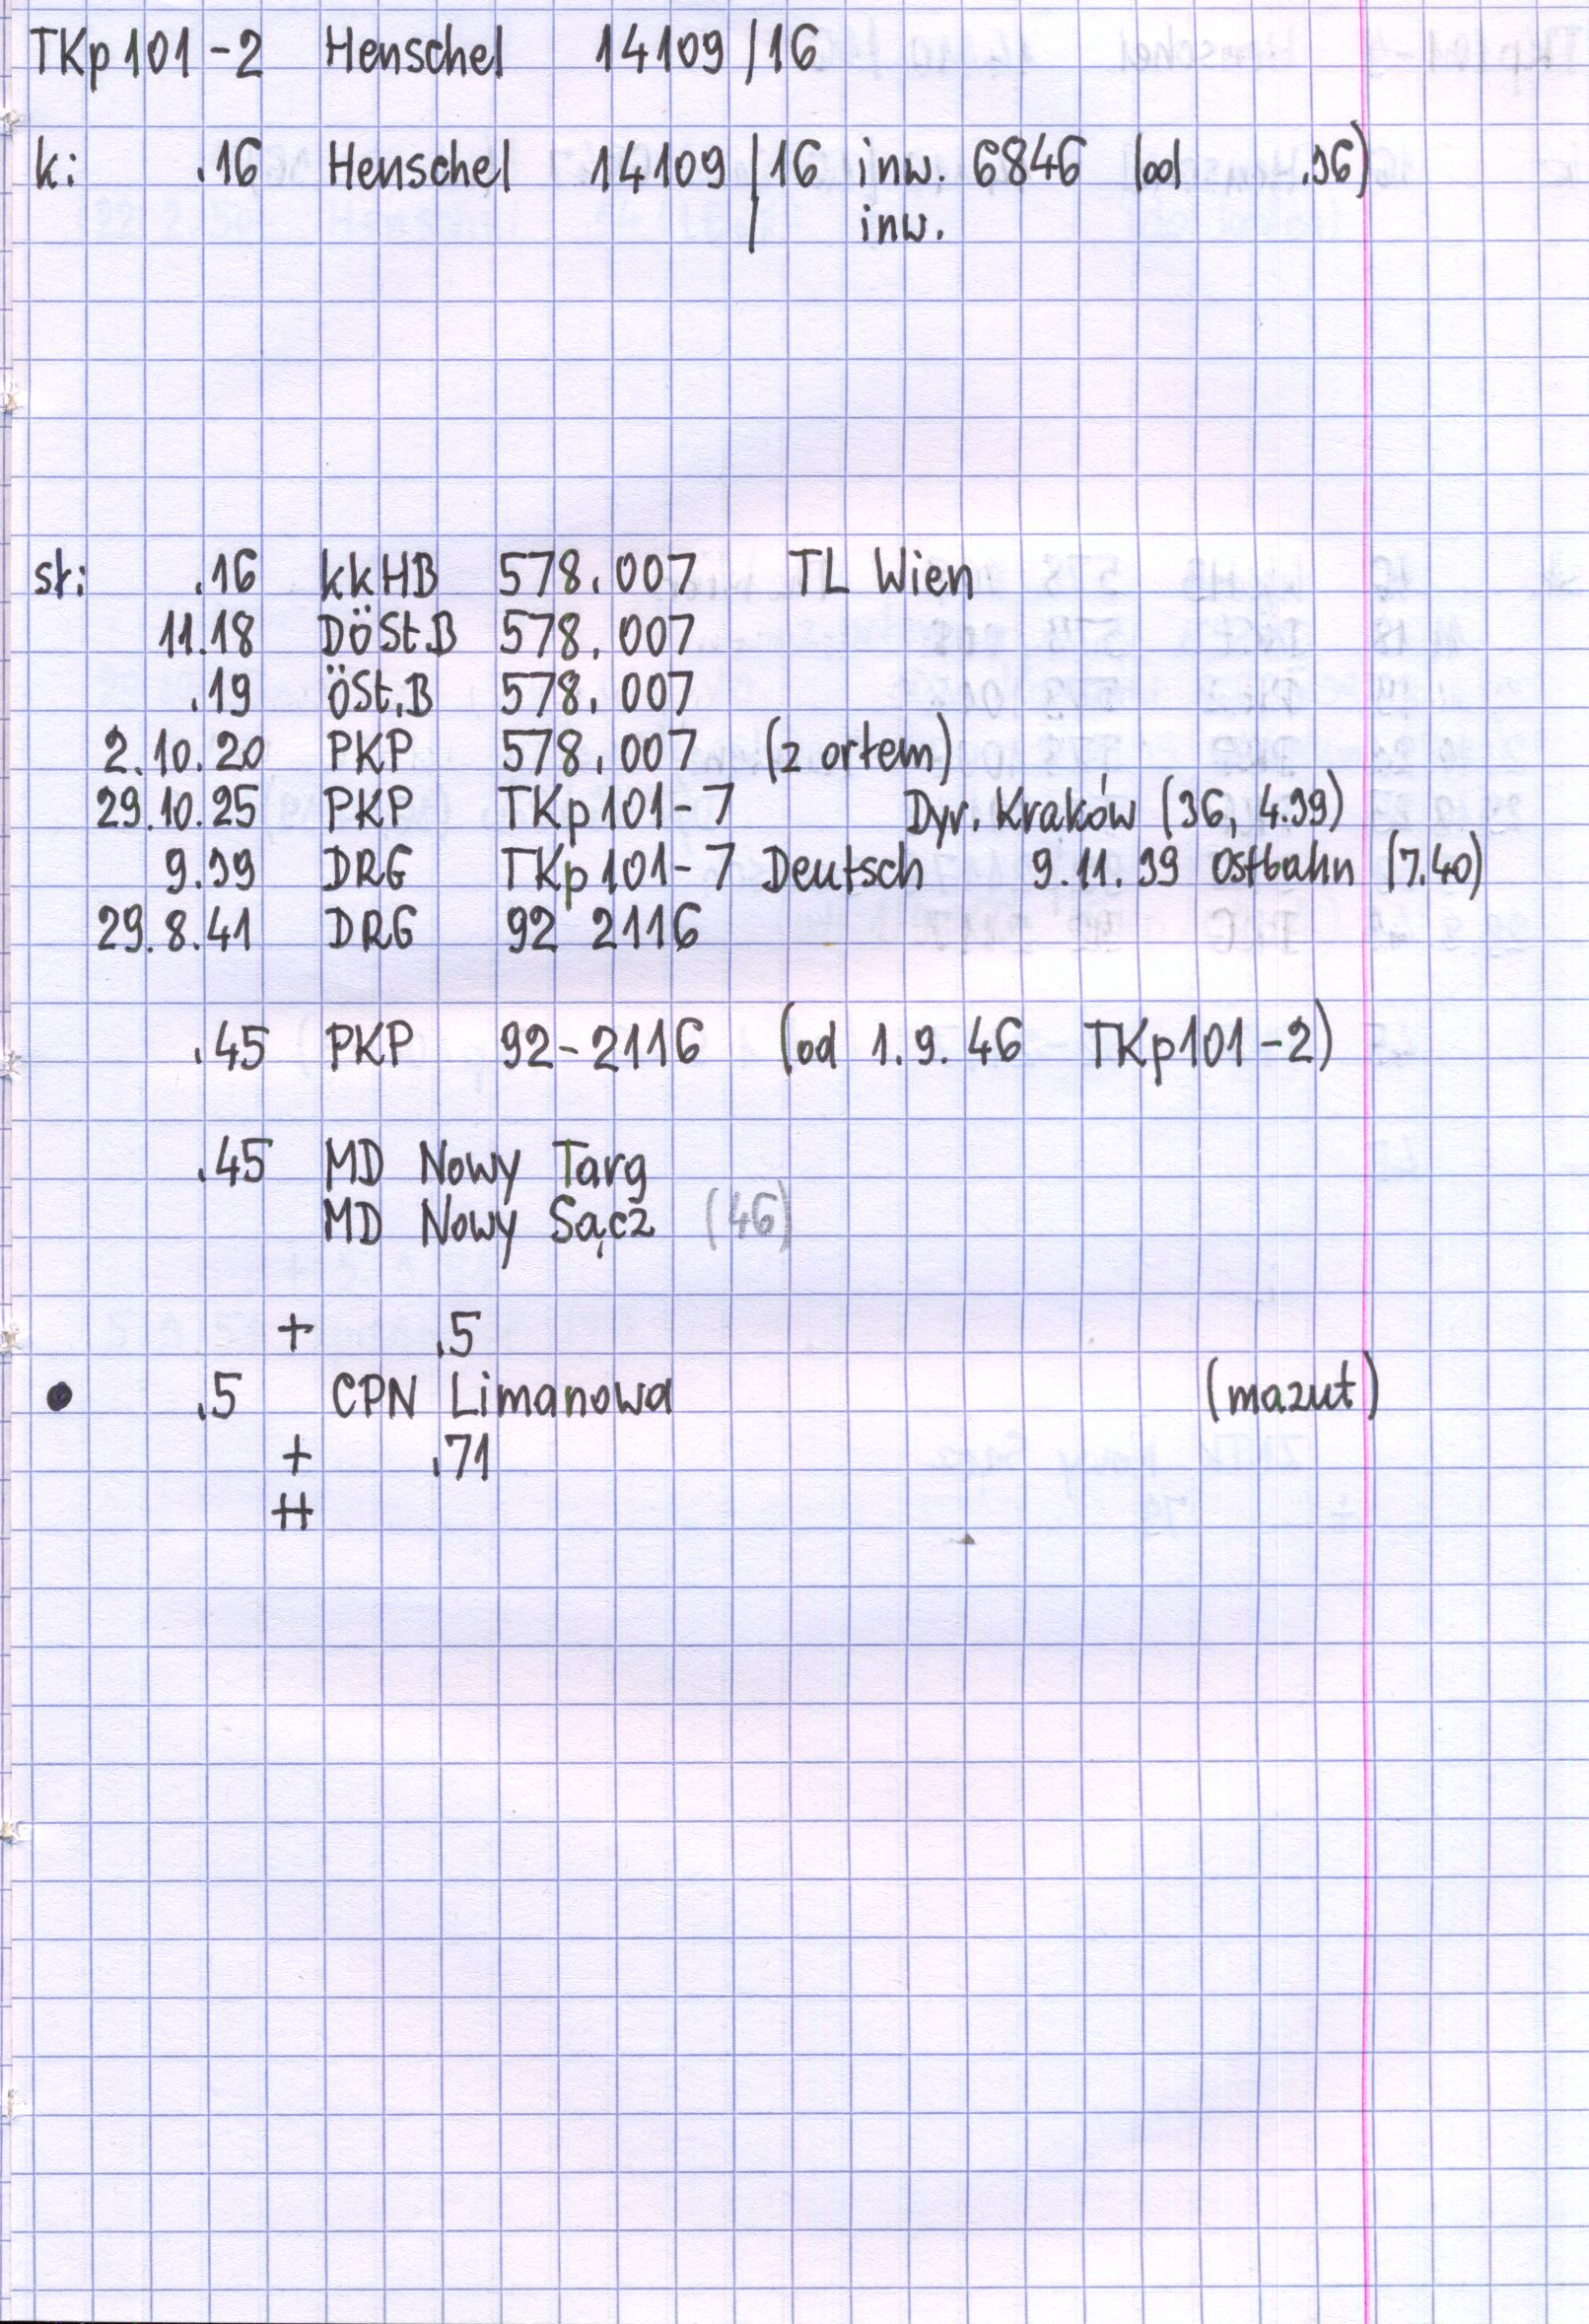 TKp101-2 Henschel 14109/16
k: .16 Henschel 14109/16 inw. 6846 (od .36)
/ inw.
st: .16 kkHB 578.007 TL Wien
11.18 DöSt.B 578.007
.19 öSt.B 578.007
2.10.20 PKP 578.007 (z ortem)
29.10.25 PKP TKp101-7 Dyr. Kraków (36, 4.39)
9.39 DRG TKp101-7 Deutsch 9.11.39 Ostbahn (7.40)
29.8.41 DRG 92 2116
.45 PKP 92-2116 (od 1.9.46 TKp101-2)
.45 MD Nowy Targ
MD Nowy Sącz (46)
+ .5
● .5 CPN Limanowa (mazut)
+ .71
++